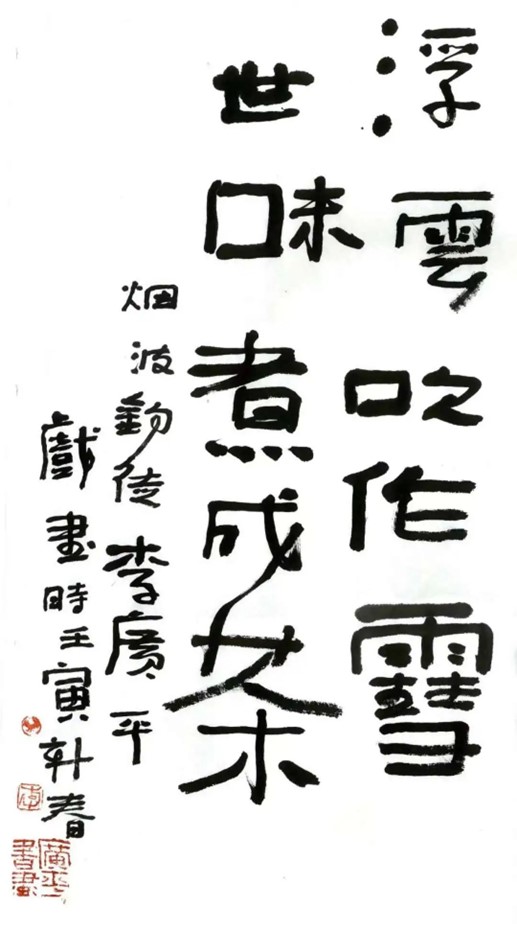 浮雲吹作雪
世味煮成茶
烟波釣徒李廣平
戲書時壬寅春
廣平書畫